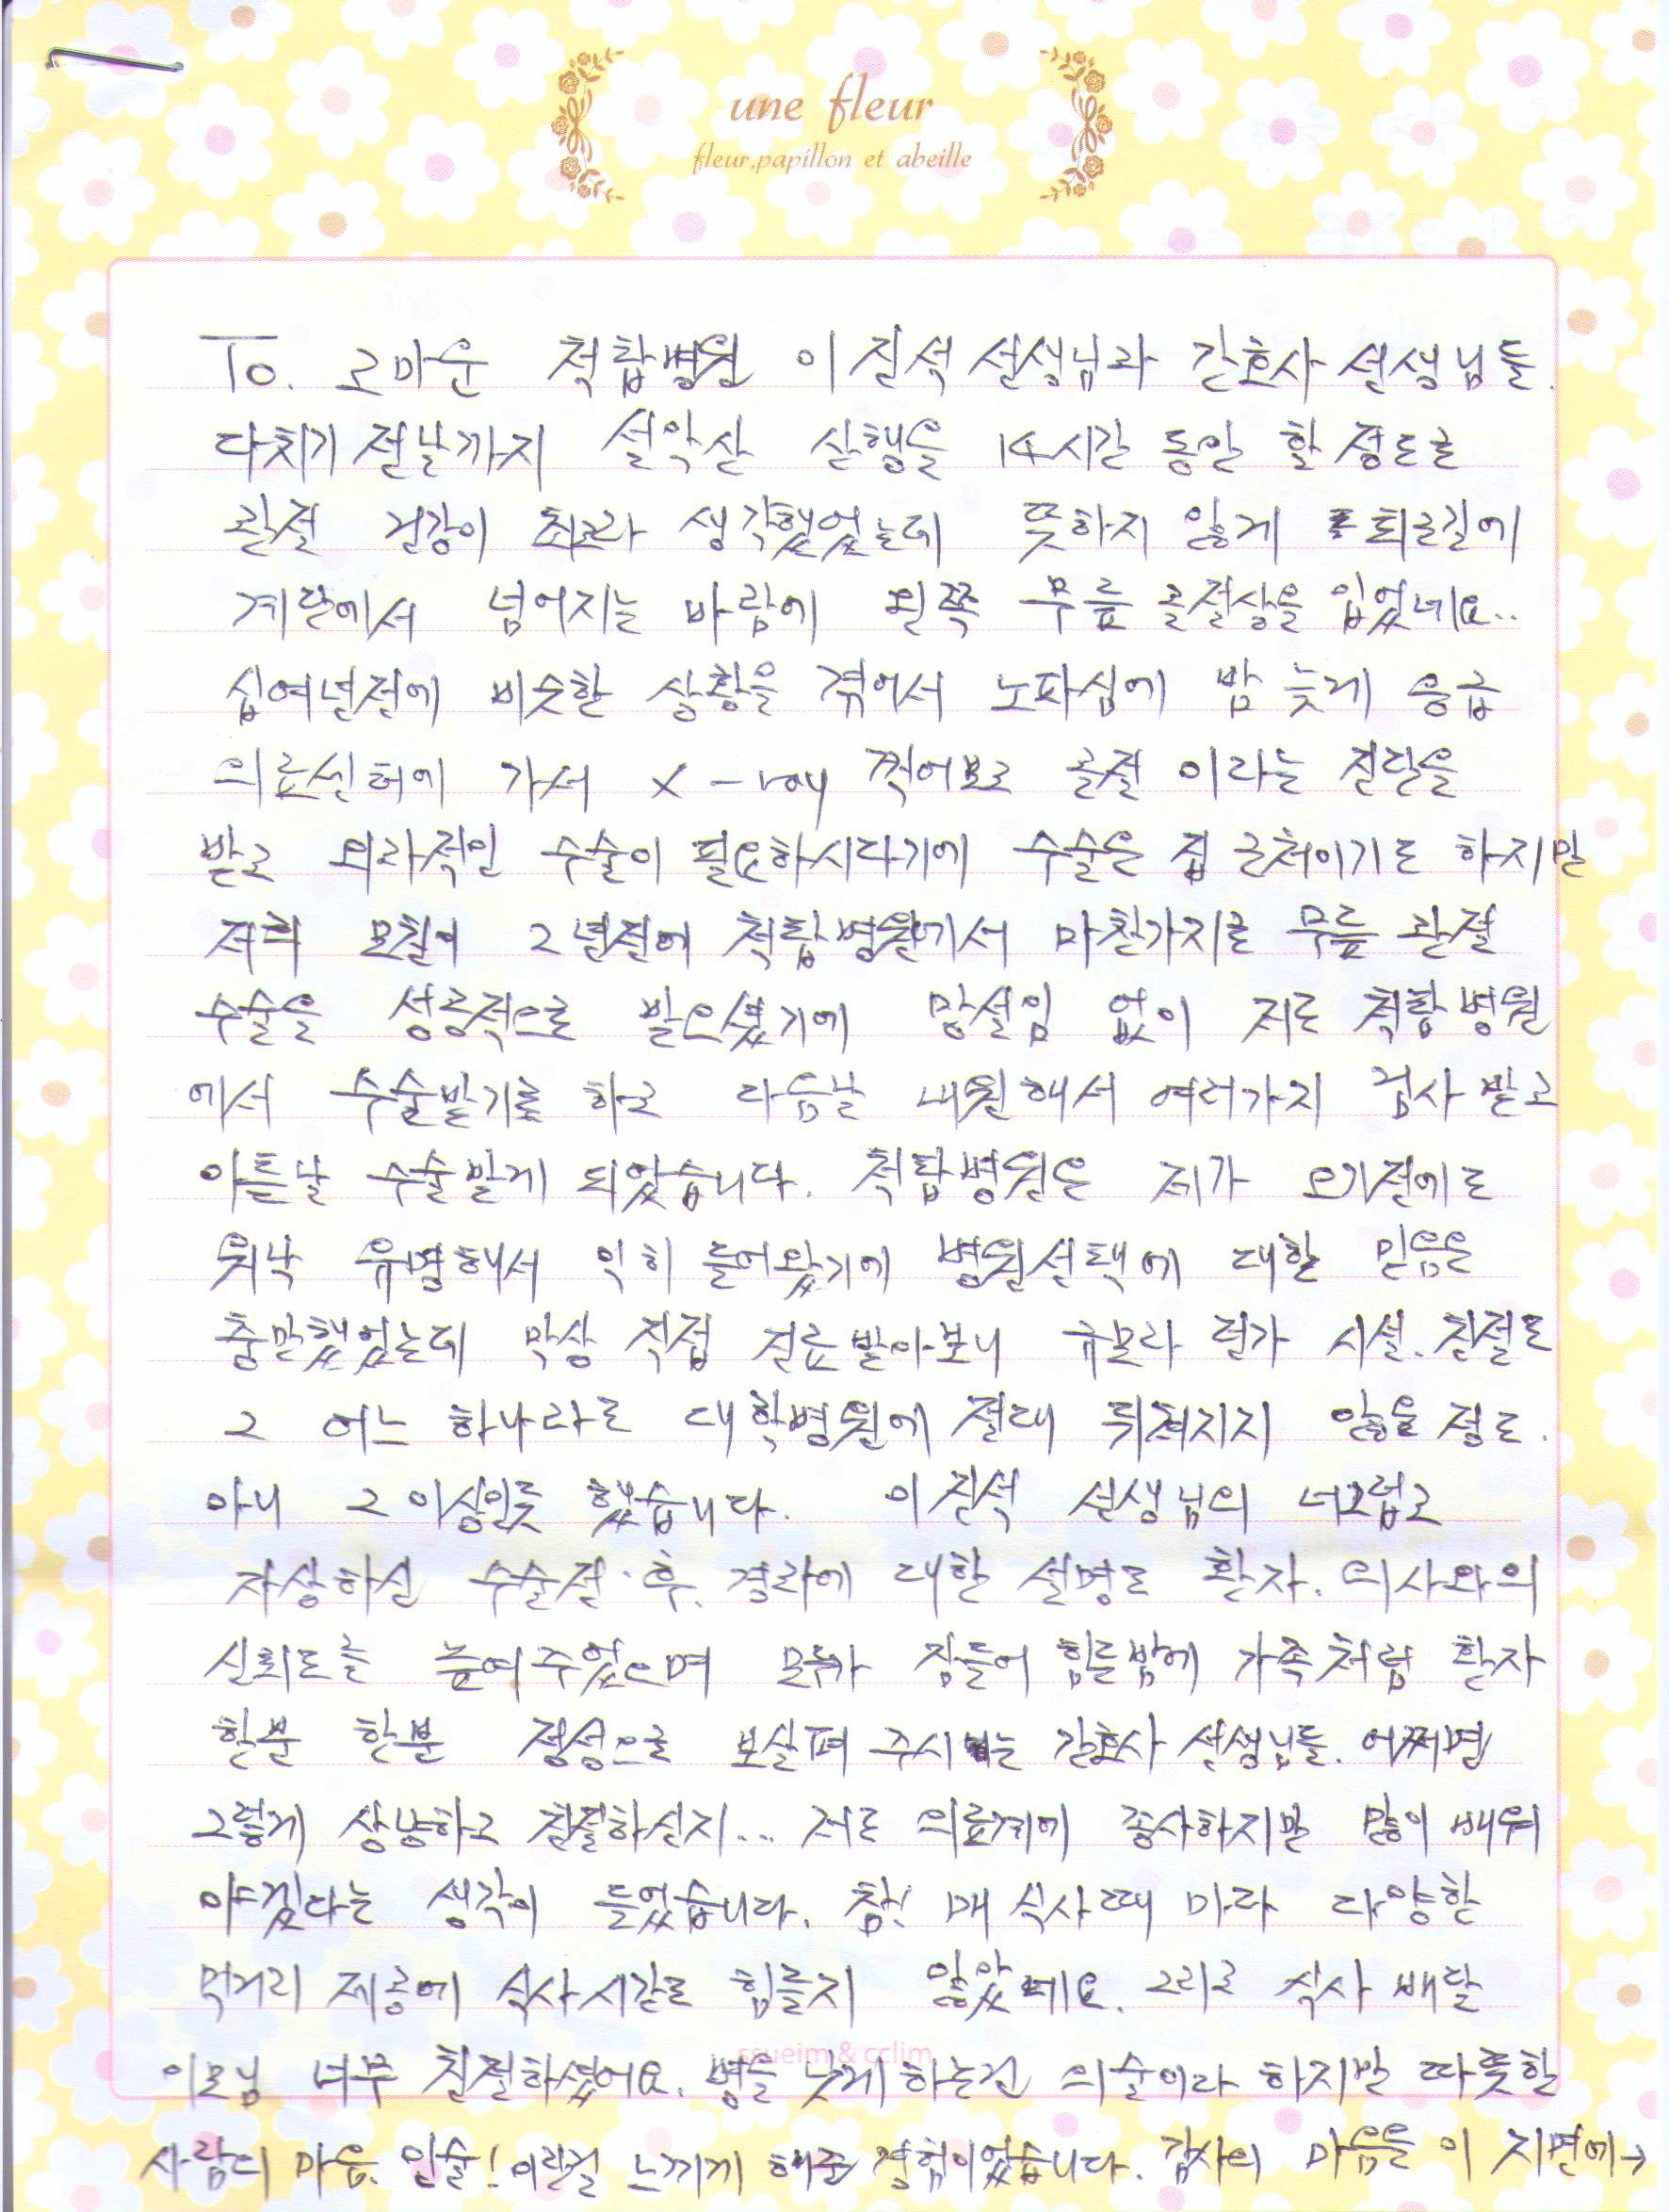 une fleur
fleur,papillon et abeille
To. 고마운 척탑병원 이진석 선생님과 간호사 선생님들.
다치기 전날까지 설악산 산행을 14시간 동안 할 정도로
관절 건강이 최고라 생각했었는데 뜻하지 않게 퇴근길에
계단에서 넘어지는 바람에 왼쪽 무릎 골절상을 입었네요..
십여년전에 비슷한 상황을 겪어서 노파심에 밤 늦게 응급
의료센터에 가서 X-ray 찍어보고 골절 이라는 진단을
받고 외과적인 수술이 필요하시다기에 수술은 집 근처이기도 하지만
저희 모친이 2년전에 척탑병원에서 마찬가지로 무릎 관절
수술을 성공적으로 받으셨기에 망설임 없이 저도 척탑병원
에서 수술받기로 하고 다음날 내원해서 여러가지 검사 받고
이튿날 수술받게 되었습니다. 척탑병원은 제가 오기전에도
워낙 유명해서 익히 들어왔기에 병원선택에 대한 믿음은
충만했었는데 막상 직접 진료받아보니 규모라 던가 시설. 친절도
그 어느 하나라도 대학병원에 절대 뒤쳐지지 않을 정도.
아니 그 이상인듯 했습니다. 이진석 선생님의 너그럽고
자상하신 수술전·후. 결과에 대한 설명도 환자. 의사와의
신뢰도를 높여주었으며 모두가 잠들어 힘든밤에 가족처럼 환자
한분 한분 정성으로 보살펴 주시는 간호사 선생님들. 어쩌면
그렇게 상냥하고 친절하신지... 저도 의료계에 종사하지만 많이 배워
야겠다는 생각이 들었습니다. 참! 매 식사때 마다 다양한
먹거리 제공에 식사시간도 힘들지 않았네요. 그리고 식사 배달
이모님 너무 친절하셨어요. 병을 낫게 하는건 의술이라 하지만 따뜻한
ssueim & cclim
사람의 마음. 인술! 이란걸 느끼게 해준 경험이었습니다. 감사의 마음을 이 지면에→